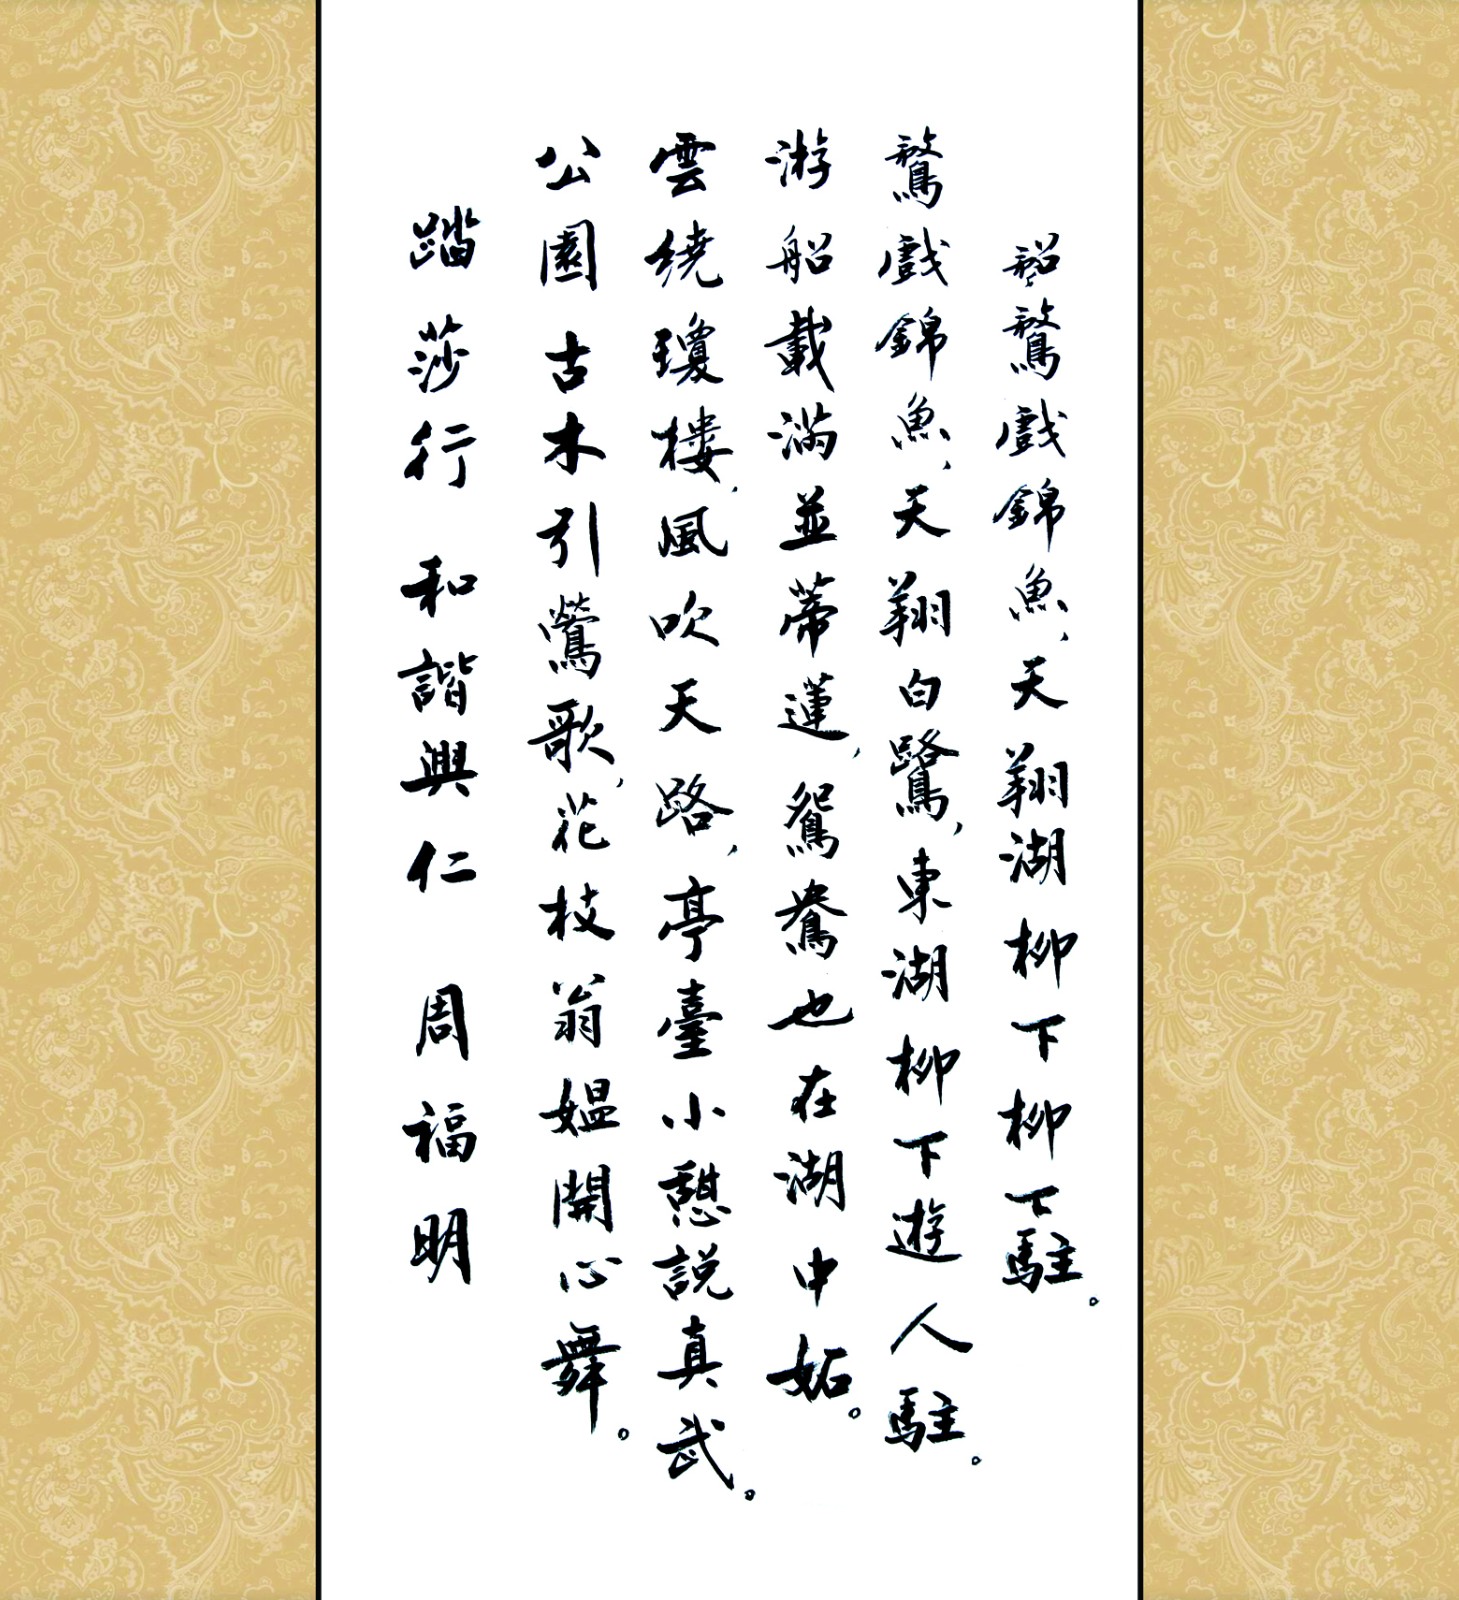 鶩戲錦魚,天翔湖柳下柳下駐。
鶩戲錦魚,天翔白鷺,東湖柳下遊人駐。
游船載滿並蒂蓮,鴛鴦也在湖中妬。
雲繞瓊樓,風吹天路,亭臺小憩説真武。
公園古木引鶯歌,花枝翁媪開心舞。
踏莎行 和諧興仁 周福明